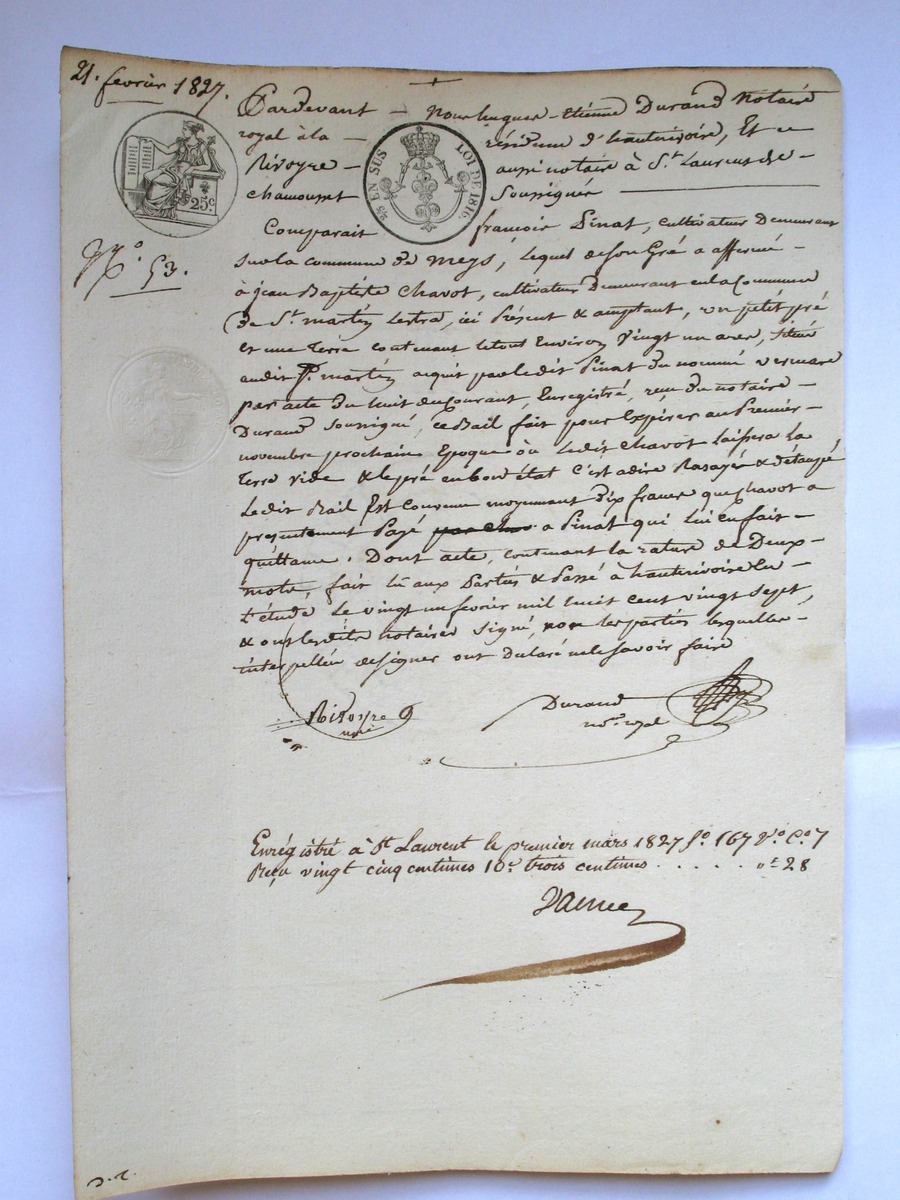 21. fevrier 1827.
Pardevant - Nous hugues-étienne Durand Notaire
royal à la - résidence d'hauterivoire, Et
Rivoyre - aussi notaire à St. Laurens de-
chamousset Soussignés
25c.
25 EN SUS LOI DE 1816.
Comparait françois Pinat, cultivateur Demeurant
Sur la commune de Meys, lequel de son Gré a affermé -
N.o 53.
à jean Baptiste Chavot, cultivateur Demeurant en la Commune
De St. martin Lestra, ici Présent & acceptant, un petit pré
et une Terre contenant le tout Environ Vingt un ares, situé
audit St. martin acquis par le dit Pinat du nommé
par acte Du huit du Courant, Enregistré, reçu Du notaire -
Durand Soussigné, ce Bail fait pour Expirer au Premier -
novembre prochain Epoque où Ledit Chavot Laissera La
Terre vide & le pré en bon état c'est adire Rasoyé &
Le dit Bail Est Convenu moyennant Dix francs que Chavot a
présentement Payé a Pinat qui lui en fait -
quittance. Dont acte, contenant la rature de Deux -
mots, fait lû aux Parties & Passé à hauterivoire En -
L'étude Le vingt un fevrier mil huit cent vingt sept,
& ont lesdits notaires Signé, non les parties lesquelles -
interpellées de signer ont Déclaré ne le Savoir faire
Rivoyre
Durand
no.re royal
Enrégistré à St Laurent le premier mars 1827 f.o 167 V.o C.e 7
Reçu vingt cinq centimes 10.e trois centimes . . . . . " = 28